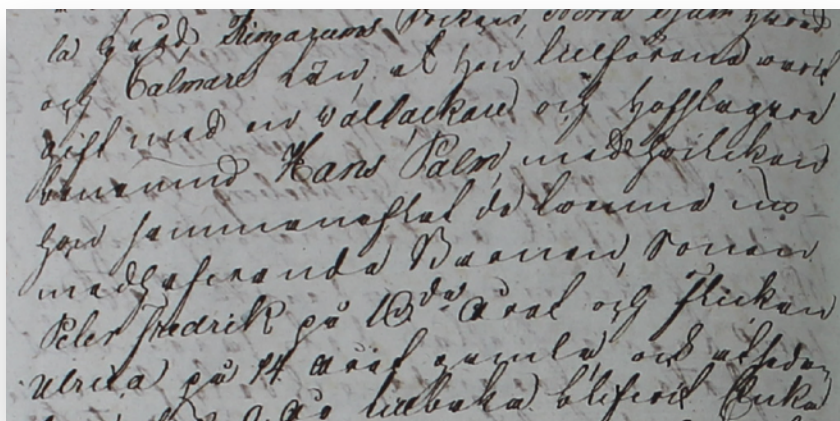 la gård, Ringarums Socken, Norra Tjust härad
och Calmare Län, at hon tillförene varit
gift med en vallackare och Hofslagare
benemnd Hans Palm, med hvilcken
hon sammanaflat de komme nu
medhafvande Barnen, Sonen
Peter Fredrik på 16de året och Flickan
Ulrica på 14 året gamla, och at sedan
År tillbaka blifvit Enka